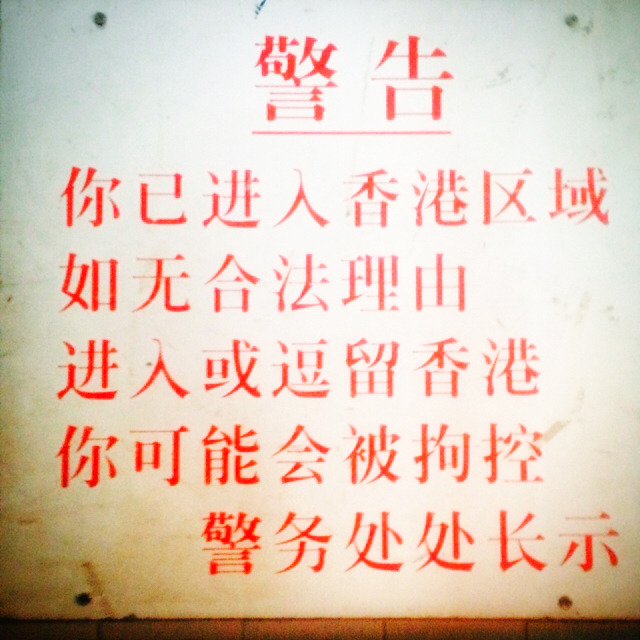 警告
你已进入香港区域
如无合法理由
进入或逗留香港
你可能会被拘控
警务处处长示